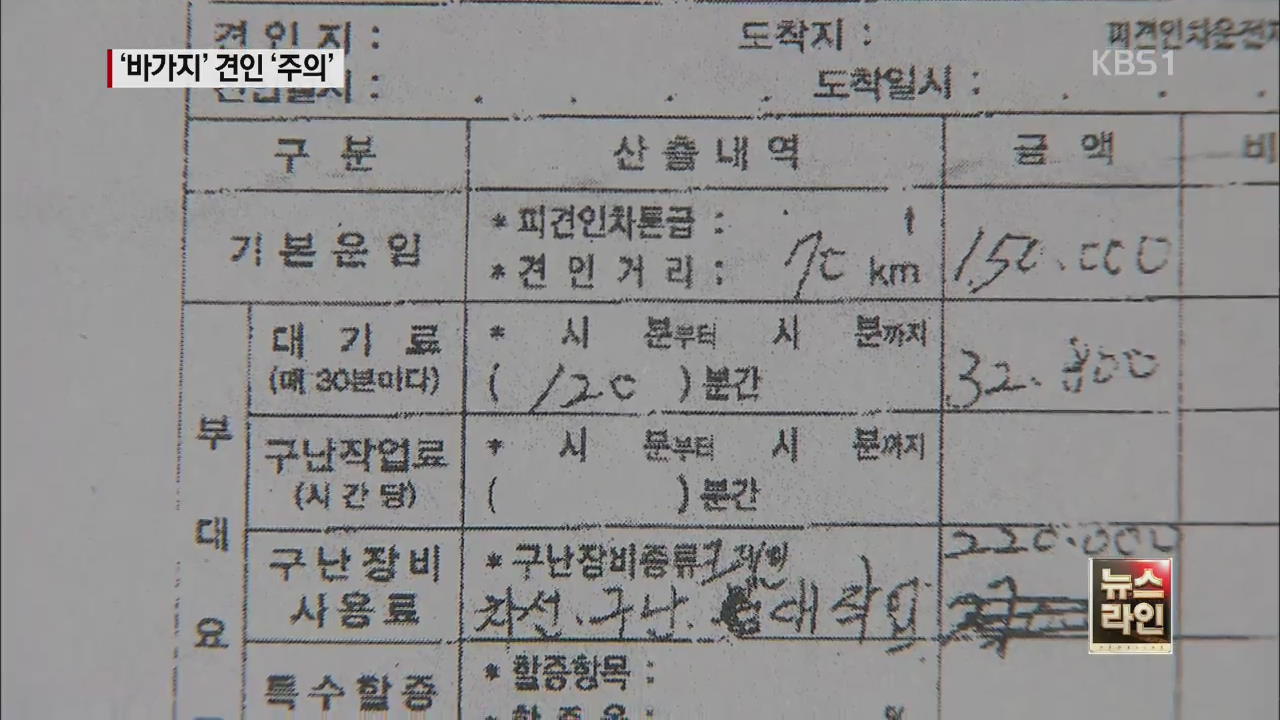 견인지 : 도착지 : 피견인차운전자
KBS1
'바가지' 견인 '주의'
견인일시 : . . . . 도착일시 : . . .
구 분 산출내역 금 액 비
기본운임 * 피견인차톤급 : t
* 견인거리 : 70 km 150.000
대 기 료 * 시 분부터 시 분까지
(매 30분마다) ( 120 ) 분간 32.800
부
구난작업료 * 시 분부터 시 분까지
(시간당) ( ) 분간
대
구난장비 * 구난장비종류 220.000
사용료 차선.구난. 대작업
뉴스
라인
요
특수할증 * 할증항목 :
* 할증율 : %